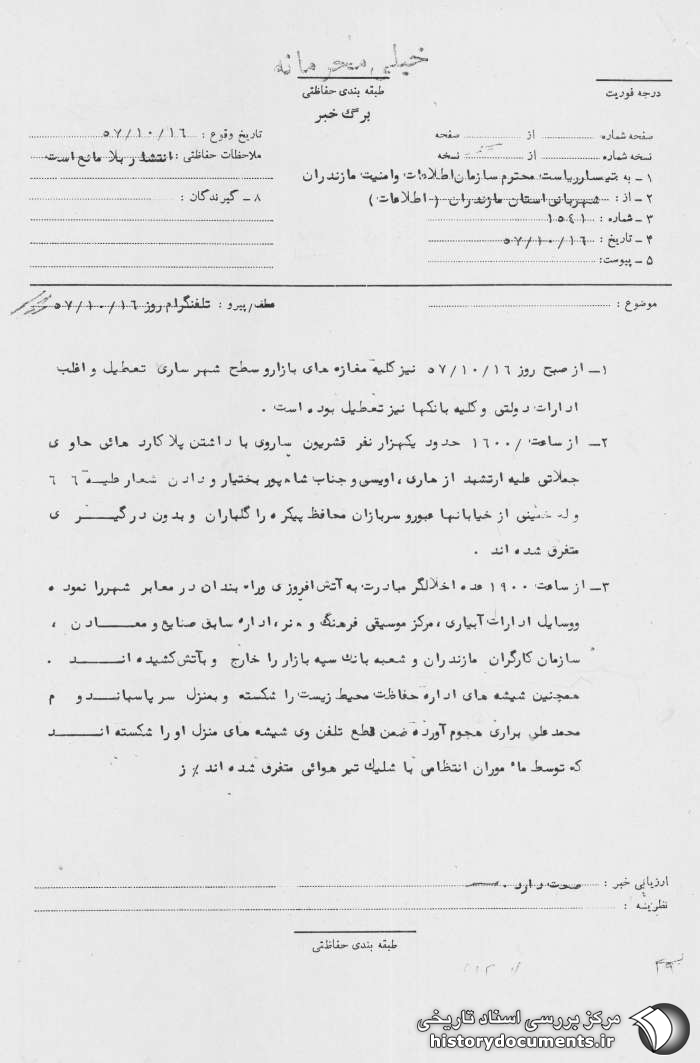 خیلی محرمانه
طبقه بندی حفاظتی
درجه فوریت
برگ خبر
صفحه شماره: از صفحه
نسخه شماره: از نسخه
۱ ـ به تیمسار ریاست محترم سازمان اطلاعات وامنیت مازندران
۲ ـ از: شهربانی استان مازندران (اطلاعات)
۳ ـ شماره: ۱۵۴۱
۴ ـ تاریخ: ۵۷/۱۰/۱۶
۵ ـ پیوست:
تاریخ وقوع: ۵۷/۱۰/۱۶
ملاحظات حفاظتی: انتشار بلا مانع است
۸ ـ گیرندگان:
موضوع:
عطف/پیرو: تلفنگرام روز ۵۷/۱۰/۱۶
۱ـ از صبح روز ۵۷/۱۰/۱۶ نیز کلیه مغازه های بازار و سطح شهر ساری تعطیل و اغلب
ادارات دولتی و کلیه بانکها نیز تعطیل بوده است .
۲ـ از ساعت /۱۶۰۰ حدود یکهزار نفر قشریون ساروی با داشتن پلاکارد هائی حاوی
جملاتی علیه ارتشبد ازهاری، اویسی و جناب شاهپور بختیار و دادن شعار علیه ۶ ۶
و له خمینی از خیابانها عبور و سربازان محافظ پیکره را گلباران و بدون درگیری
متفرق شده اند .
۳ـ از ساعت ۱۹۰۰ عده اخلالگر مبادرت به آتش افروزی و راه بندان در معابر شهر را نموده
و وسایل ادارات آبیاری، مرکز موسیقی فرهنگ و هنر، اداره سابق صنایع و معادن ،
سازمان کارگران مازندران و شعبه بانک سپه بازار را خارج و بآتش کشیده اند .
همچنین شیشه های اداره حفاظت محیط زیست را شکسته و بمنزل سر پاسبان دوم
محمدعلی براری هجوم آورده ضمن قطع تلفن وی شیشه های منزل او را شکسته اند
که توسط مأموران انتظامی با شلیک تیر هوائی متفرق شده اند ٪ ز
ارزیابی خبر: صحت دارد .
نظریه:
طبقه بندی حفاظتی
مرکز بررسی اسناد تاریخی
historydocuments.ir